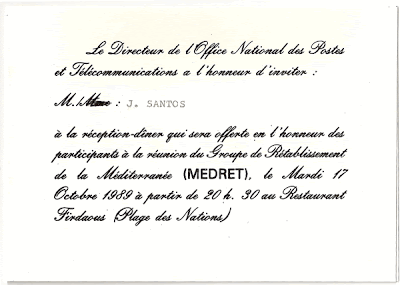 Le Directeur de l'Office National des Postes
et Télécommunications a l'honneur d'inviter :
M./Mme : J. SANTOS
à la réception-diner qui sera offerte en l'honneur des
participants à la réunion du Groupe de Rétablissement
de la Méditerranée (MEDRET), le Mardi 17
Octobre 1989 à partir de 20 h. 30 au Restaurant
Firdaous (Plage des Nations)